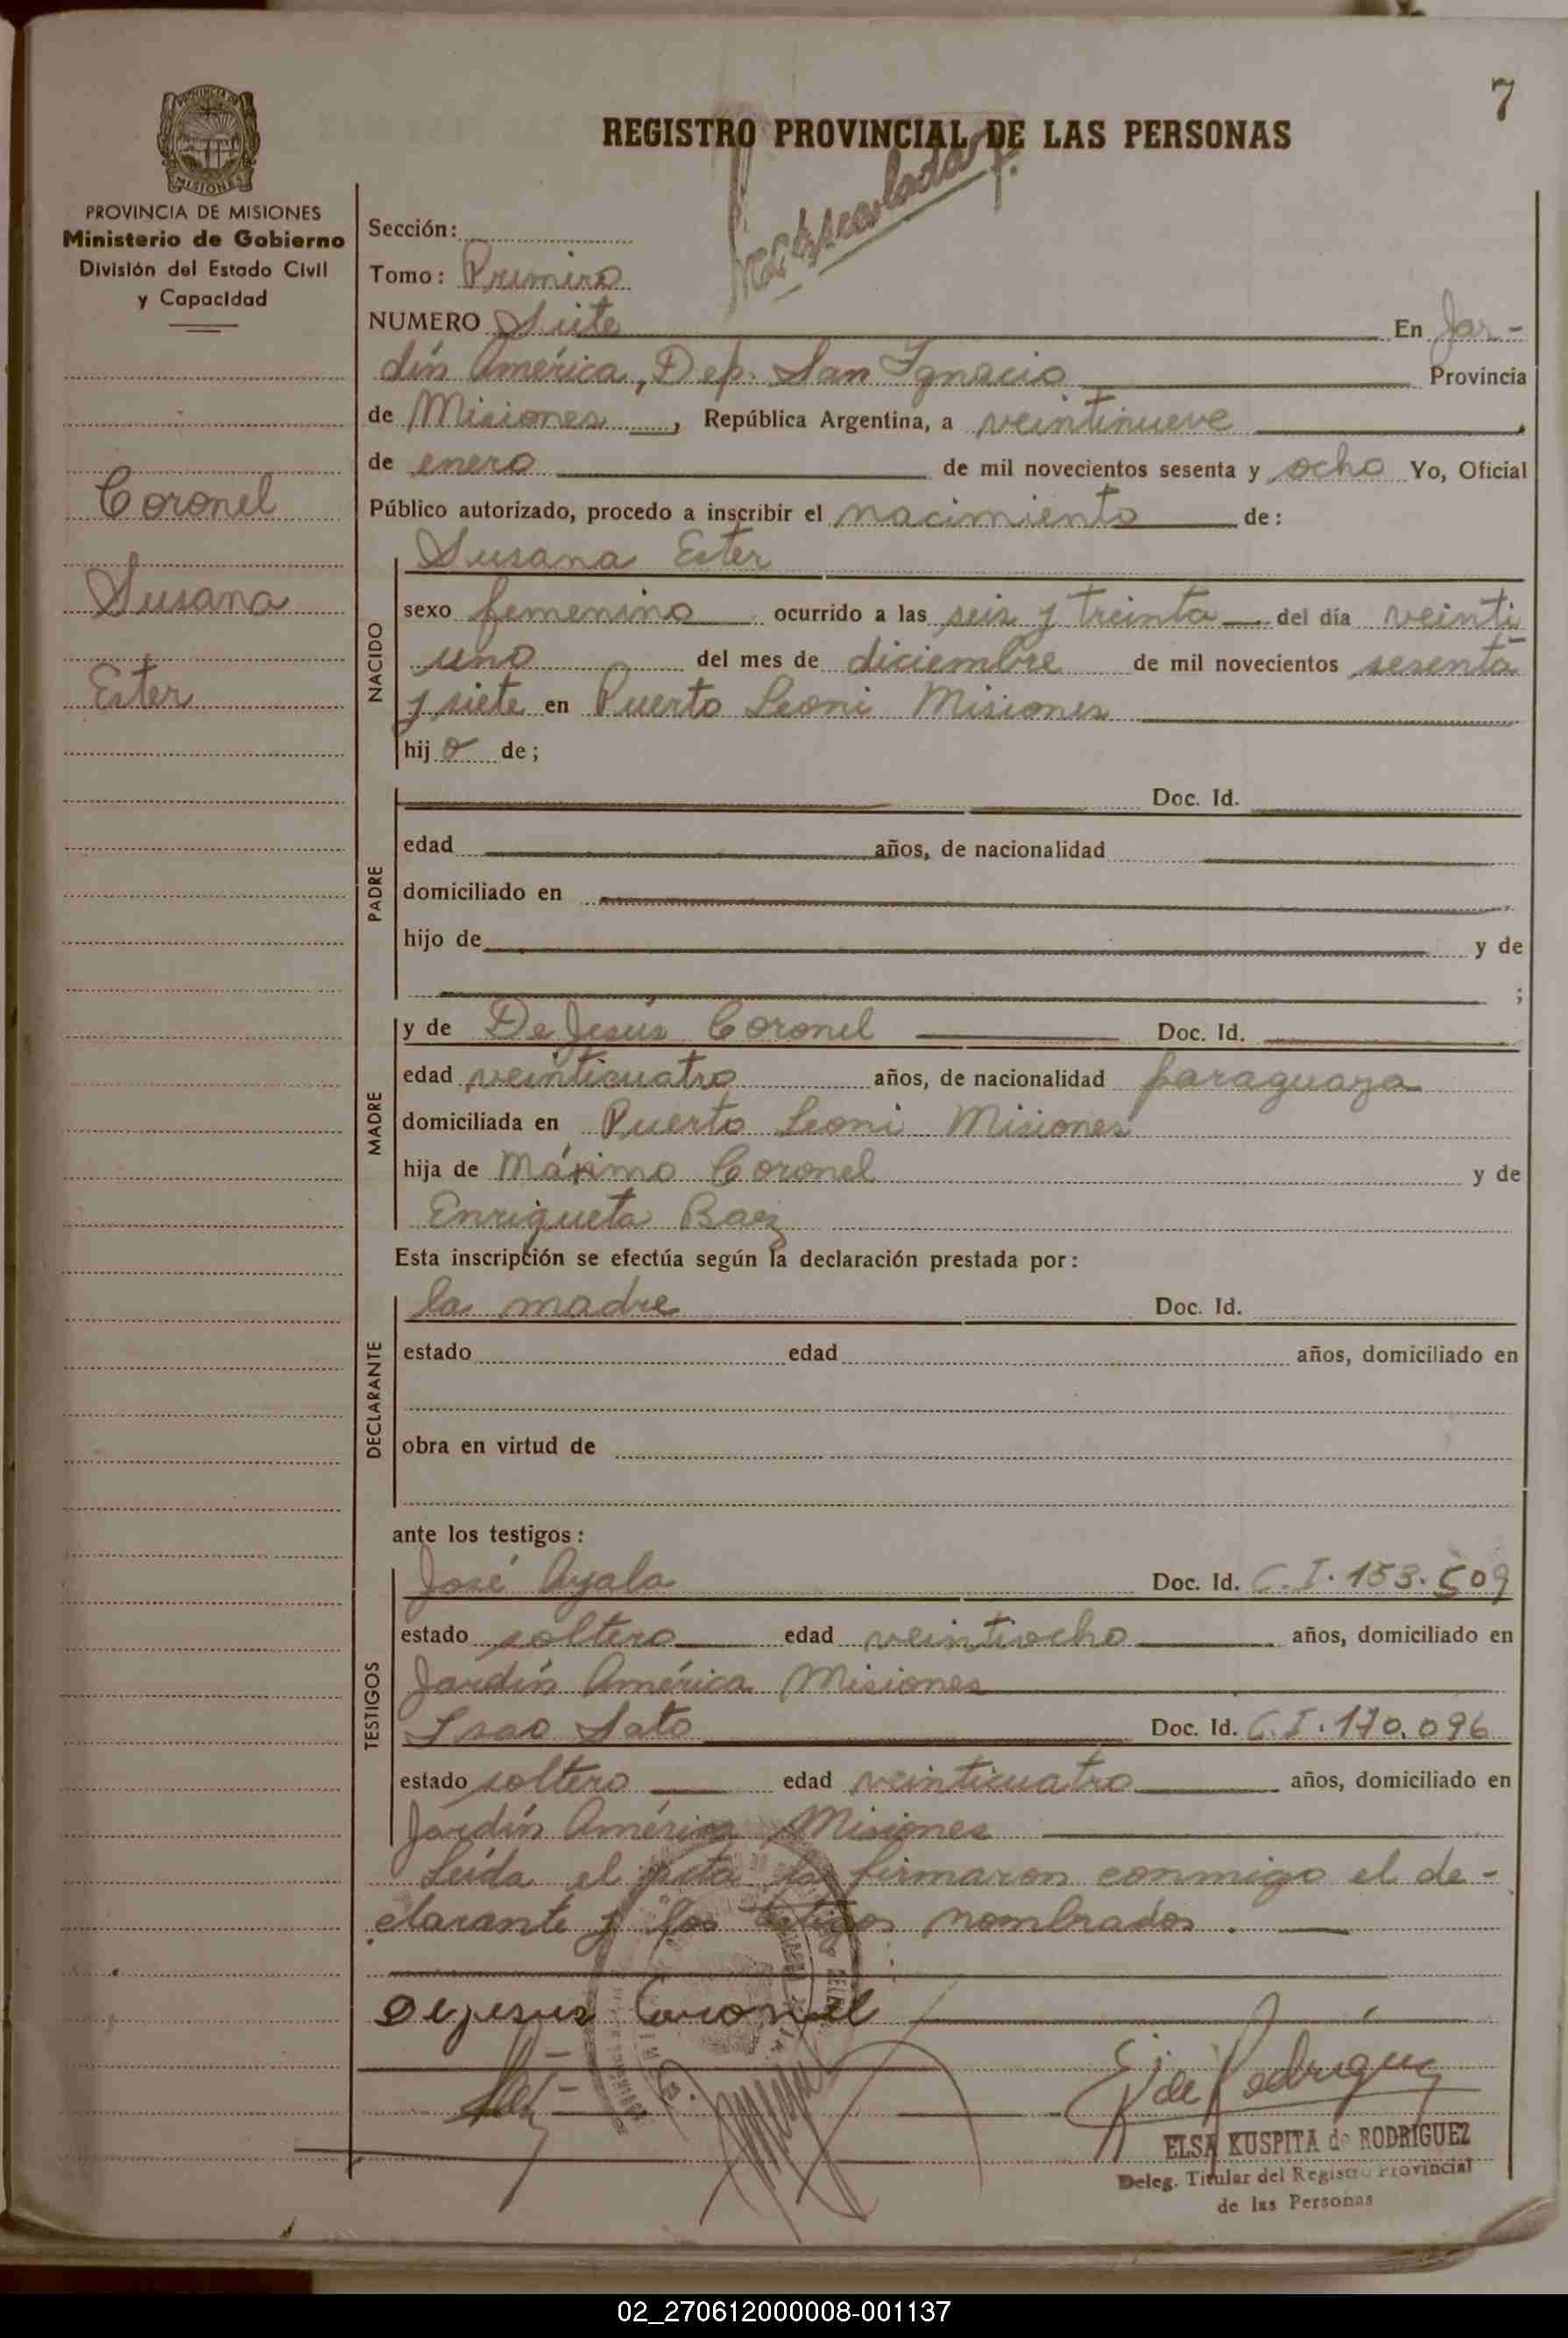 7
REGISTRO PROVINCIAL DE LAS PERSONAS
PROVINCIA DE MISIONES
Ministerio de Gobierno
División del Estado Civil
y Capacidad
Coronel
Susana
Ester
Sección:
Tomo: Primero
NUMERO Siete En Jar-
dín América, Dep. San Ignacio Provincia
de Misiones, República Argentina, a veintinueve
de enero de mil novecientos sesenta y ocho Yo, Oficial
Público autorizado, procedo a inscribir el nacimiento de:
NACIDO
Susana Ester
sexo femenino ocurrido a las seis y treinta del día veinti
uno del mes de diciembre de mil novecientos sesenta
y siete en Puerto Leoni Misiones
hija de;
PADRE
Doc. Id.
edad años, de nacionalidad
domiciliado en
hijo de y de
;
MADRE
y de De Jesús Coronel Doc. Id.
edad veinticuatro años, de nacionalidad paraguaya
domiciliada en Puerto Leoni Misiones
hija de Máximo Coronel y de
Enriqueta Baez
Esta inscripción se efectúa según la declaración prestada por:
DECLARANTE
la madre Doc. Id.
estado edad años, domiciliado en
obra en virtud de
ante los testigos:
TESTIGOS
José Ayala Doc. Id. C.I. 153.509
estado soltero edad veintiocho años, domiciliado en
Jardín América Misiones
Isao Sato Doc. Id. C.I. 170.096
estado soltero edad veinticuatro años, domiciliado en
Jardín América Misiones
Leída el acta la firmaron conmigo el de-
clarante y los testigos nombrados.
Dejesus Coronel
E. de Rodriguez
ELSA KUSPITA de RODRIGUEZ
Deleg. Titular del Registro Provincial
de las Personas
02_270612000008-001137